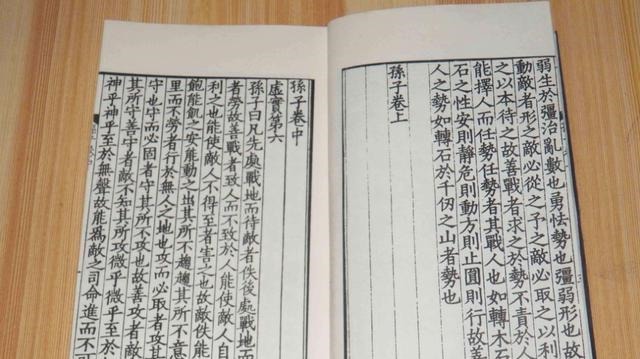 弱生於彊治亂數也勇怯勢也彊弱形也故
動敵者形之敵必從之予之敵必取之以利
之以本待之故善戰者求之於勢不責於人
能擇人而任勢任勢者其戰人也如轉木石
石之性安則靜危則動方則止圓則行故善
人之勢如轉石於千仞之山者勢也
孫子卷上
孫子卷中
虛實第六
孫子曰凡先處戰地而待敵者佚後處戰地而
者勞故善戰者致人而不致於人能使敵人自
利之也能使敵人不得至者害之也故敵佚能
飽能飢之安能動之出其所不趨趨其所不意
里而不勞者行於無人之地也攻而必取者
守也守而必固者守其所不攻也故善攻者敵
其所守善守者敵不知其所攻微乎微乎至於
神乎神乎至於無聲故能爲敵之司命進而不